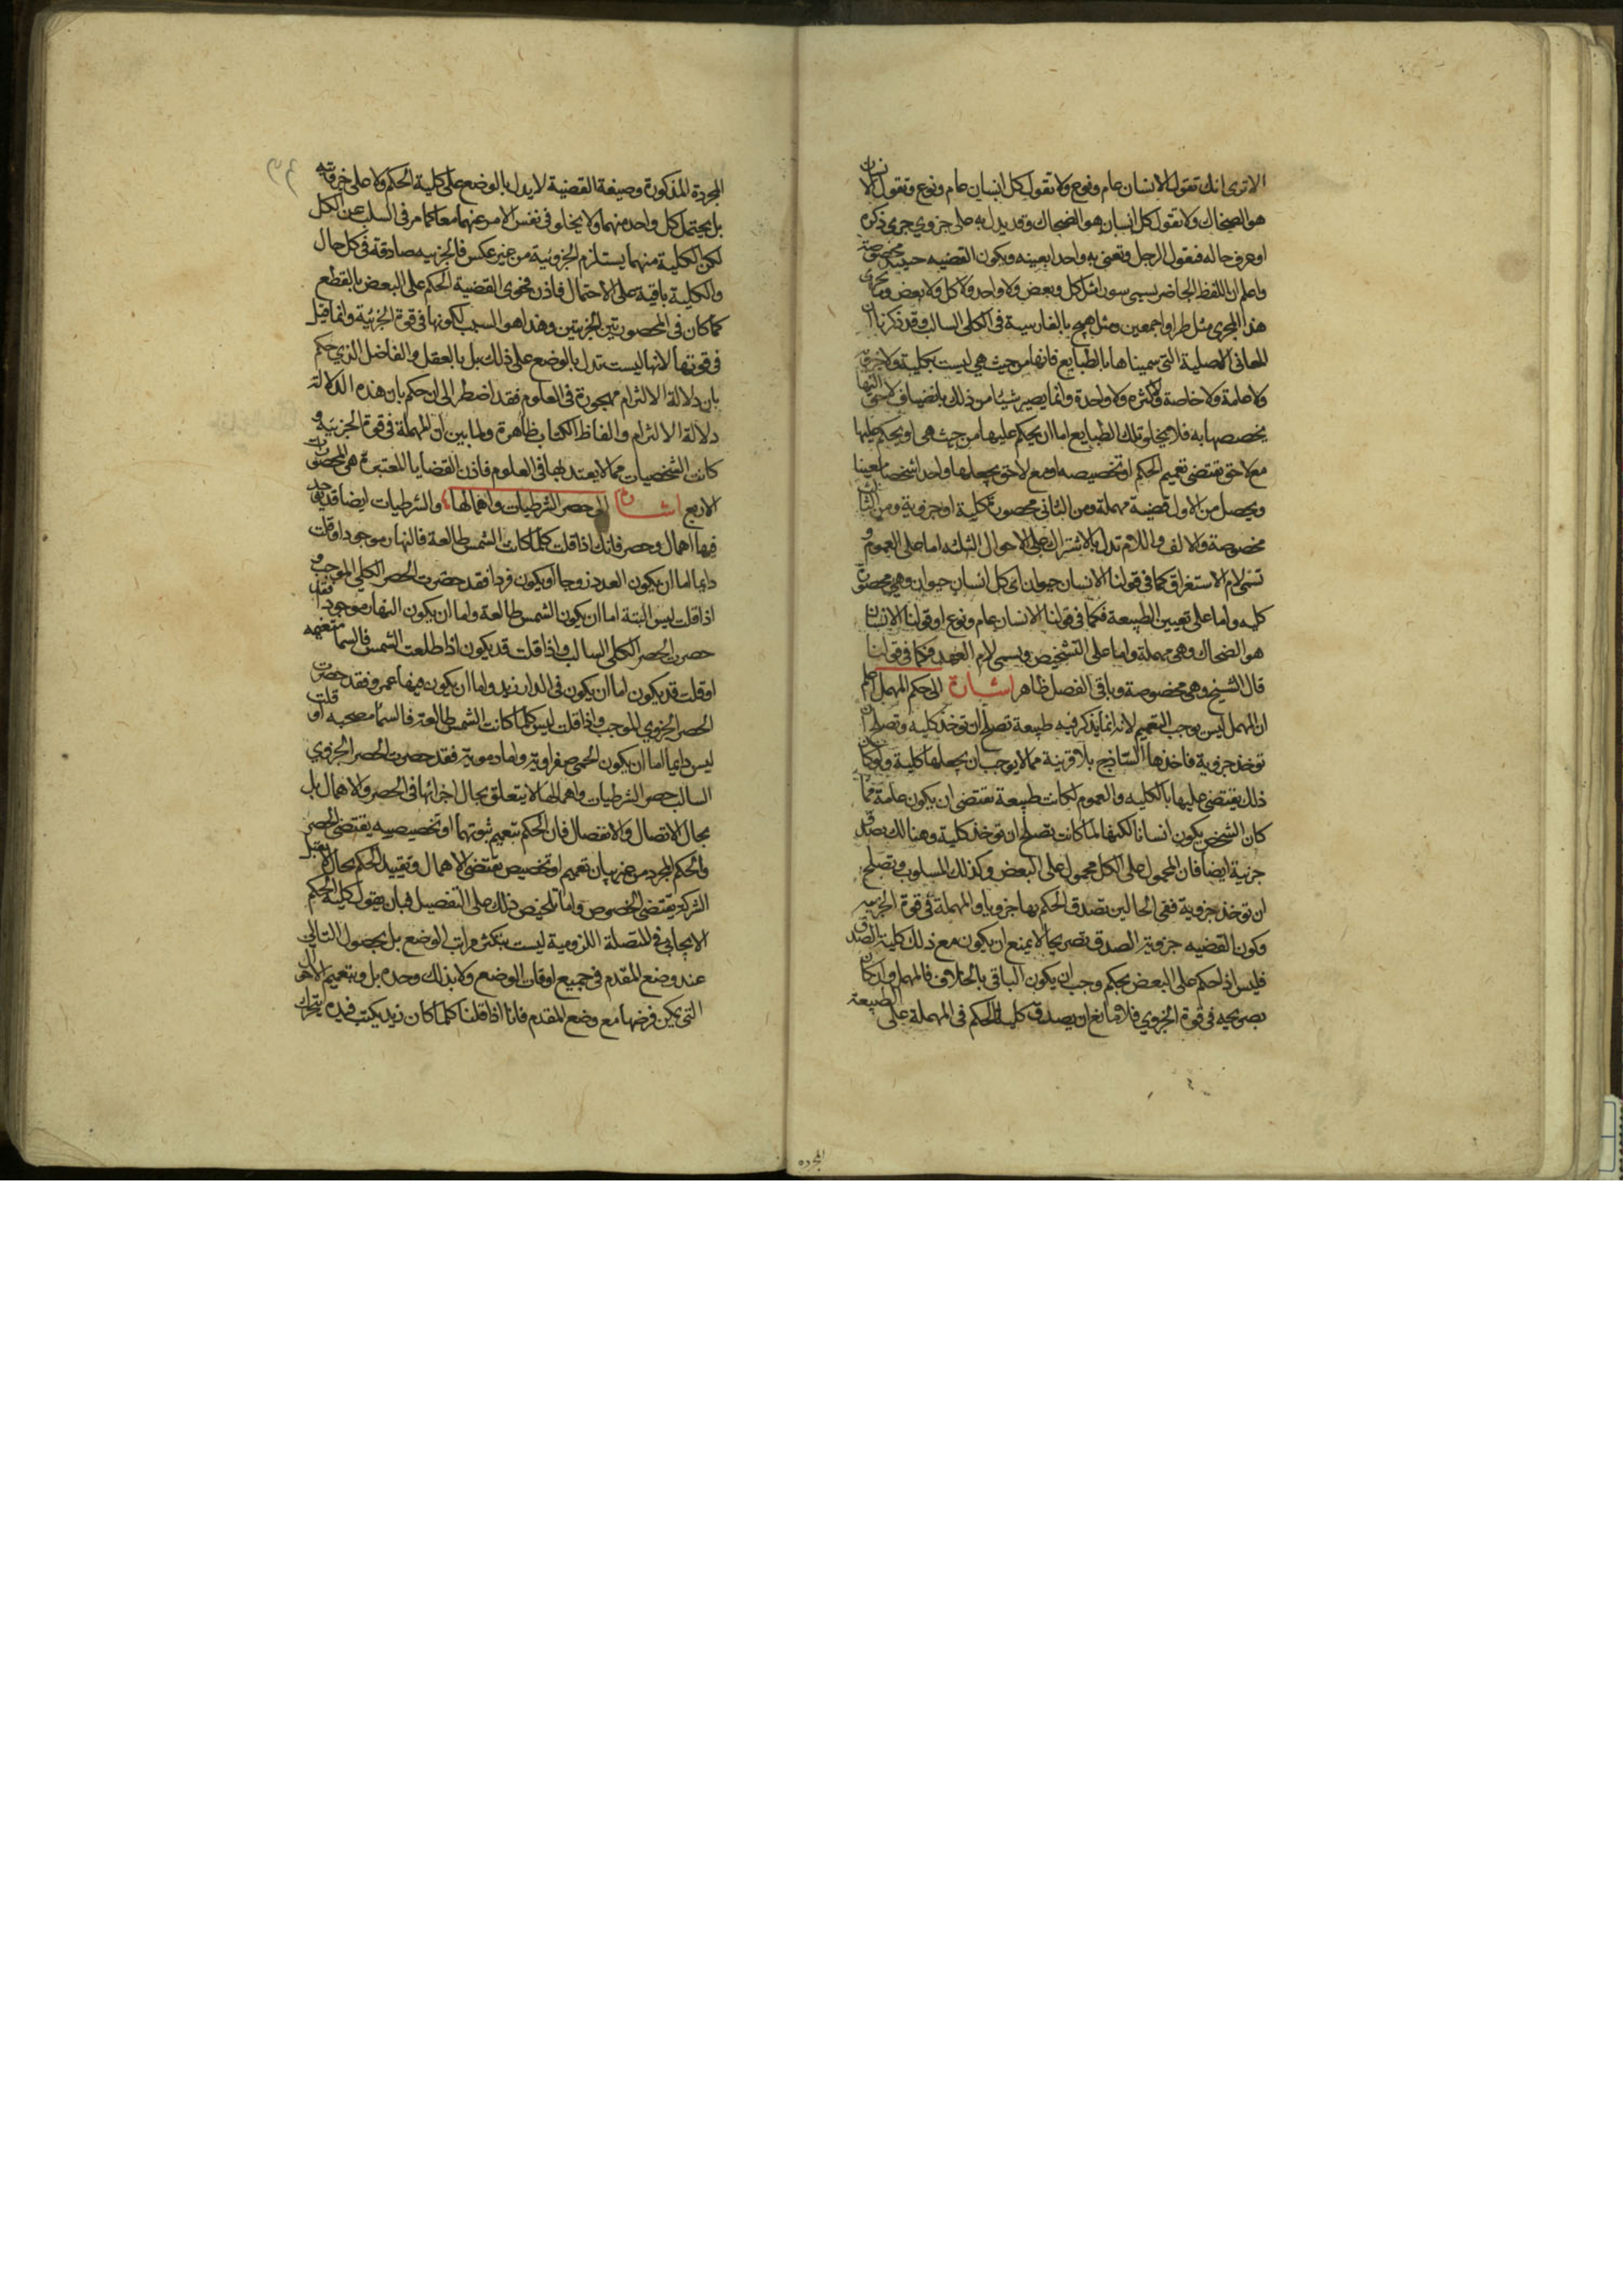 الاترى انك تقول الانسان عام ونوع ولا تقول كل انسان عام ونوع وتقول الانسان
هو الضحاك ولا تقول كل انسان هو الضحاك وقد يدل به على جزوي جرى ذكره
او عرف حاله فتقول الرجل وتعنى به واحدا بعينه ويكون القضيه حينئذ مخصوصة
واعلم ان اللفظ الحاصر يسمى سورا مثل كل وبعض ولا واحد ولا كل ولا بعض وما يجرى
هذا المجرى مثل طرا واجمعين ومثل هيچ بالفارسية فى الكلى السالب وقد ذكرنا ان
المعانى الاصلية التى سميناها بالطبايع فانها من حيث هى ليست بكلية ولا جزوية
ولا عامة ولا خاصة ولا كثيره ولا واحدة وانما يصير شيئا من ذلك بانضياف لاحق اليها
يخصصها به فلا يخلو تلك الطبايع اما ان يحكم عليها من حيث هى او يحكم عليها
مع لاحق يقتضى تعميم الحكم او تخصيصه او مع لاحق يجعلها واحدا شخصا معينا
ويحصل من الاول قضية مهملة ومن الثانى محصورة كلية او جزوية ومن الثالث
مخصوصة والالف واللام تدل بالاشتراك على الاحوال الثلثه اما على العموم و
تسمى لام الاستغراق كما فى قولنا الانسان حيوان اى كل انسان حيوان وهى محصورة
كليه واما على تعيين الطبيعة فكما فى قولنا الانسان عام ونوع او قولنا الانسان
هو الضحاك وهى مهملة واما على التشخيص ويسمى لام العهد فكما فى قولنا
قال الشيخ وهى مخصوصة وباقى الفصل ظاهر اشارة الى حكم المهمل اعلم
ان المهمل ليس يوجب التعميم لانه انما يذكر فيه طبيعة تصلح ان توخذ كليه وتصلح ان
توخذ جزوية فاخذها الساذج بلا قرينة مما لا يوجب ان يجعلها كلية ولو كان
ذلك يقتضى عليها بالكليه والعموم لكانت طبيعة تقتضى ان يكون عامة فما
كان الشخص يكون انسانا لكنها لما كانت تصلح ان توخذ كلية وهنالك يصدق
جزئية ايضا فان المحمول على الكل محمول على البعض وكذلك المسلوب وتصلح
ان توخذ جزوية ففى الحالين تصدق الحكم بها جزويا والمهملة فى قوة الجزئيه
وكون القضيه جزوية الصدق تصريحا لا يمنع ان يكون مع ذلك كلية الصدق
فليس اذا حكم على البعض بحكم وجب ان يكون الباقى بالخلاف فالمهمل وان كان
بصريحه فى قوة الجزوي فلا مانع ان يصدق كليا الحكم فى المهملة على الطبيعة
المجرده
المجردة المذكورة وصيغة القضية لا يدل بالوضع على كلية الحكم ولا على جزوئيته
بل يحتمل كل واحد منهما ولا يخلو فى نفس الامر عنهما معا كما مر فى السلب عن الكل
لكن الكلية منهما يستلزم الجزوئية من غير عكس فالجزييه صادقة فى كل حال
والكلية باقية على الاحتمال فاذن فحوى القضية الحكم على البعض بالقطع
كما كان فى المحصورتين الجزيتين وهذا هو السبب لكونها فى قوة الجزئية وانما قيل
فى قوتها لانها ليست تدل بالوضع على ذلك بل بالعقل والفاضل الذي حكم
بان دلالة الالتزام مهجورة فى العلوم فقد اضطر الى ان حكم بان هذه الدلالة
دلالة الالتزام والفاظ الكتاب ظاهرة ولما بين ان المهملة فى قوة الجزئية و
كانت الشخصيات مما لا يعتد بها فى العلوم فاذن القضايا المعتبرة هى المحصورات
الاربع اشارة الى حصر الشرطيات واهمالها والشرطيات ايضا قد يوجد
فيها اهمال وحصر فانك اذا قلت كلما كانت الشمس طالعة فالنهار موجود او قلت
دايما اما ان يكون العدد زوجا او يكون فردا فقد حصرت الحصر الكلي الموجب و
اذا قلت ليس البتة اما ان يكون الشمس طالعة واما ان يكون النهار موجودا فقد
حصرت الحصر الكلى السالب واذا قلت قد يكون اذا طلعت الشمس فالسماء متغيمه
او قلت قد يكون اما ان يكون فى الدار زيد واما ان يكون فيها عمرو فقد حصرت
الحصر الجزوي الموجب واذا قلت ليس كلما كانت الشمس طالعة فالسماء مصحيه او قلت
ليس دايما اما ان يكون الحمى صفراوية واما دموية فقد حصرت الحصر الجزوي
السالب حصر الشرطيات واهمالها لا يتعلق بحال اجزائها فى الحصر والاهمال بل
بحال الاتصال والانفصال فان الحكم بتعميم ثبوتهما او تخصيصه يقتضى الحصر
والحكم المجرد من غير بيان تعميم او تخصيص يقتضى الاهمال وتقييد الحكم بحال لا يقبل
الشركة يقتضى الخصوص واما تلخيص ذلك على التفصيل فبان يقول كلية الحكم
الايجابى فى المتصلة اللزومية ليست بتكثر مراتب الوضع بل بحصول التالى
عند وضع المقدم فى جميع اوقات الوضع ولا بذلك وحده بل وبتعميم الاحوال
التى يمكن فرضها مع وضع المقدم فانا اذا قلنا كلما كان زيد يكتب فيده يتحرك